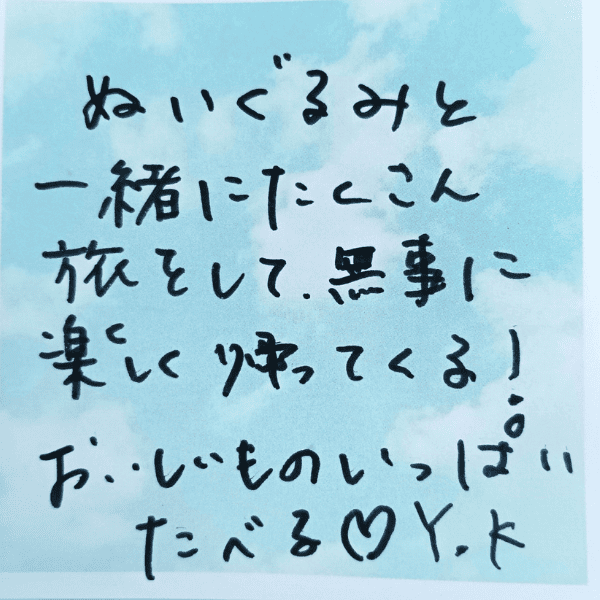 ぬいぐるみと
一緒にたくさん
旅をして、無事に
楽しく帰ってくる!
おいしいものいっぱい
たべる♡Y.K